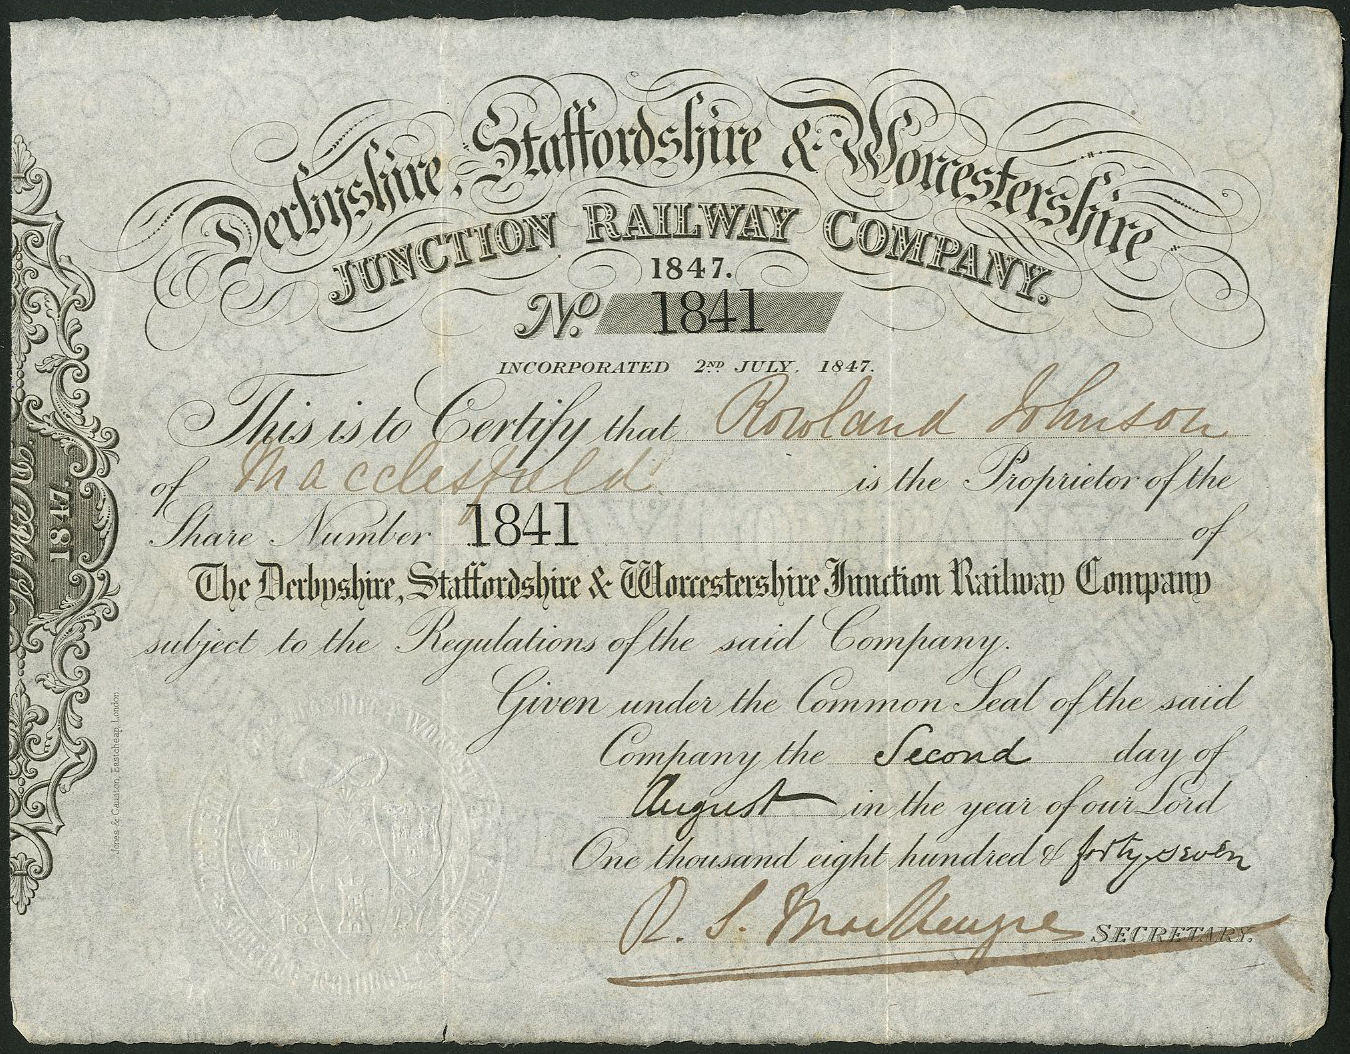 Derbyshire, Staffordshire & Worcestershire
JUNCTION RAILWAY COMPANY.
1847.
No. 1841
INCORPORATED 2ND JULY, 1847.
This is to Certify that Rowland Johnson
of Macclesfield is the Proprietor of the
Share Number 1841 of
The Derbyshire, Staffordshire & Worcestershire Junction Railway Company
subject to the Regulations of the said Company.
Given under the Common Seal of the said
Company the Second day of
August in the year of our Lord
One thousand eight hundred & forty-seven
R. S. MacKenzie SECRETARY.
Jones & Causton, Eastcheap, London
1847.